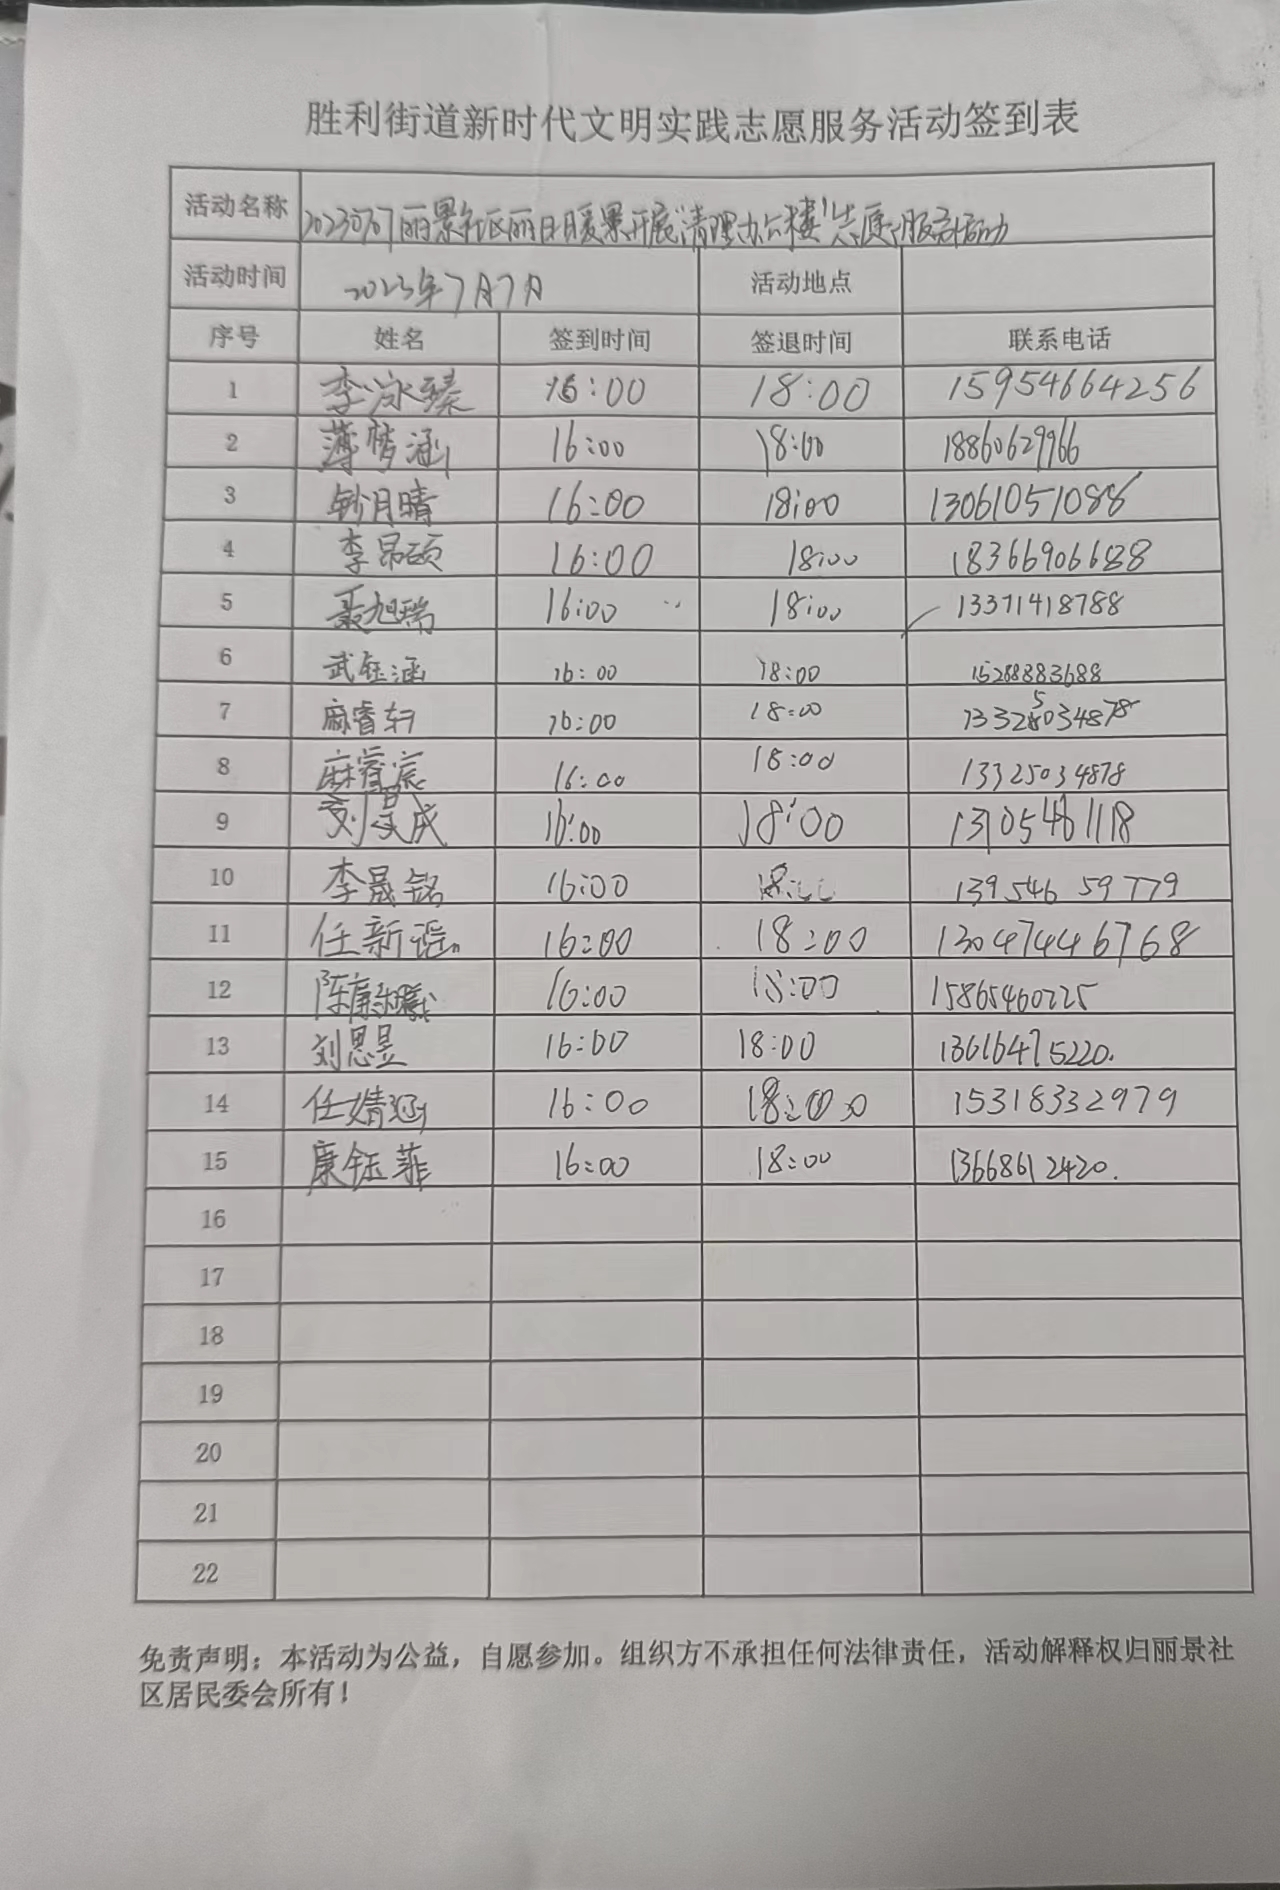 胜利街道新时代文明实践志愿服务活动签到表
活动名称 20230707丽景社区丽日暖景开展“清理办公楼”志愿服务活动
活动时间 2023年7月7日 活动地点
序号 姓名 签到时间 签退时间 联系电话
1 李泳臻 16:00 18:00 15954664256
2 薄梦涵 16:00 18:00 18860629966
3 钞月晴 16:00 18:00 13061051088
4 李昂硕 16:00 18:00 18366906688
5 聂旭瑞 16:00 18:00 13371418788
6 武钰涵 16:00 18:00 15288383688
7 麻睿轩 16:00 18:00 13325034878
8 麻睿宸 16:00 18:00 13325034878
9 刘昊成 16:00 18:00 13105461118
10 李晟铭 16:00 18:00 139 546 59779
11 任新 16:00 18:00 13047446768
12 陈康 16:00 18:00 15865460225
13 刘恩昱 16:00 18:00 13616475220.
14 任婧涵 16:00 18:00 15318332979
15 康钰菲 16:00 18:00 13668612420.
16
17
18
19
20
21
22
免责声明：本活动为公益，自愿参加。组织方不承担任何法律责任，活动解释权归丽景社
区居民委会所有！